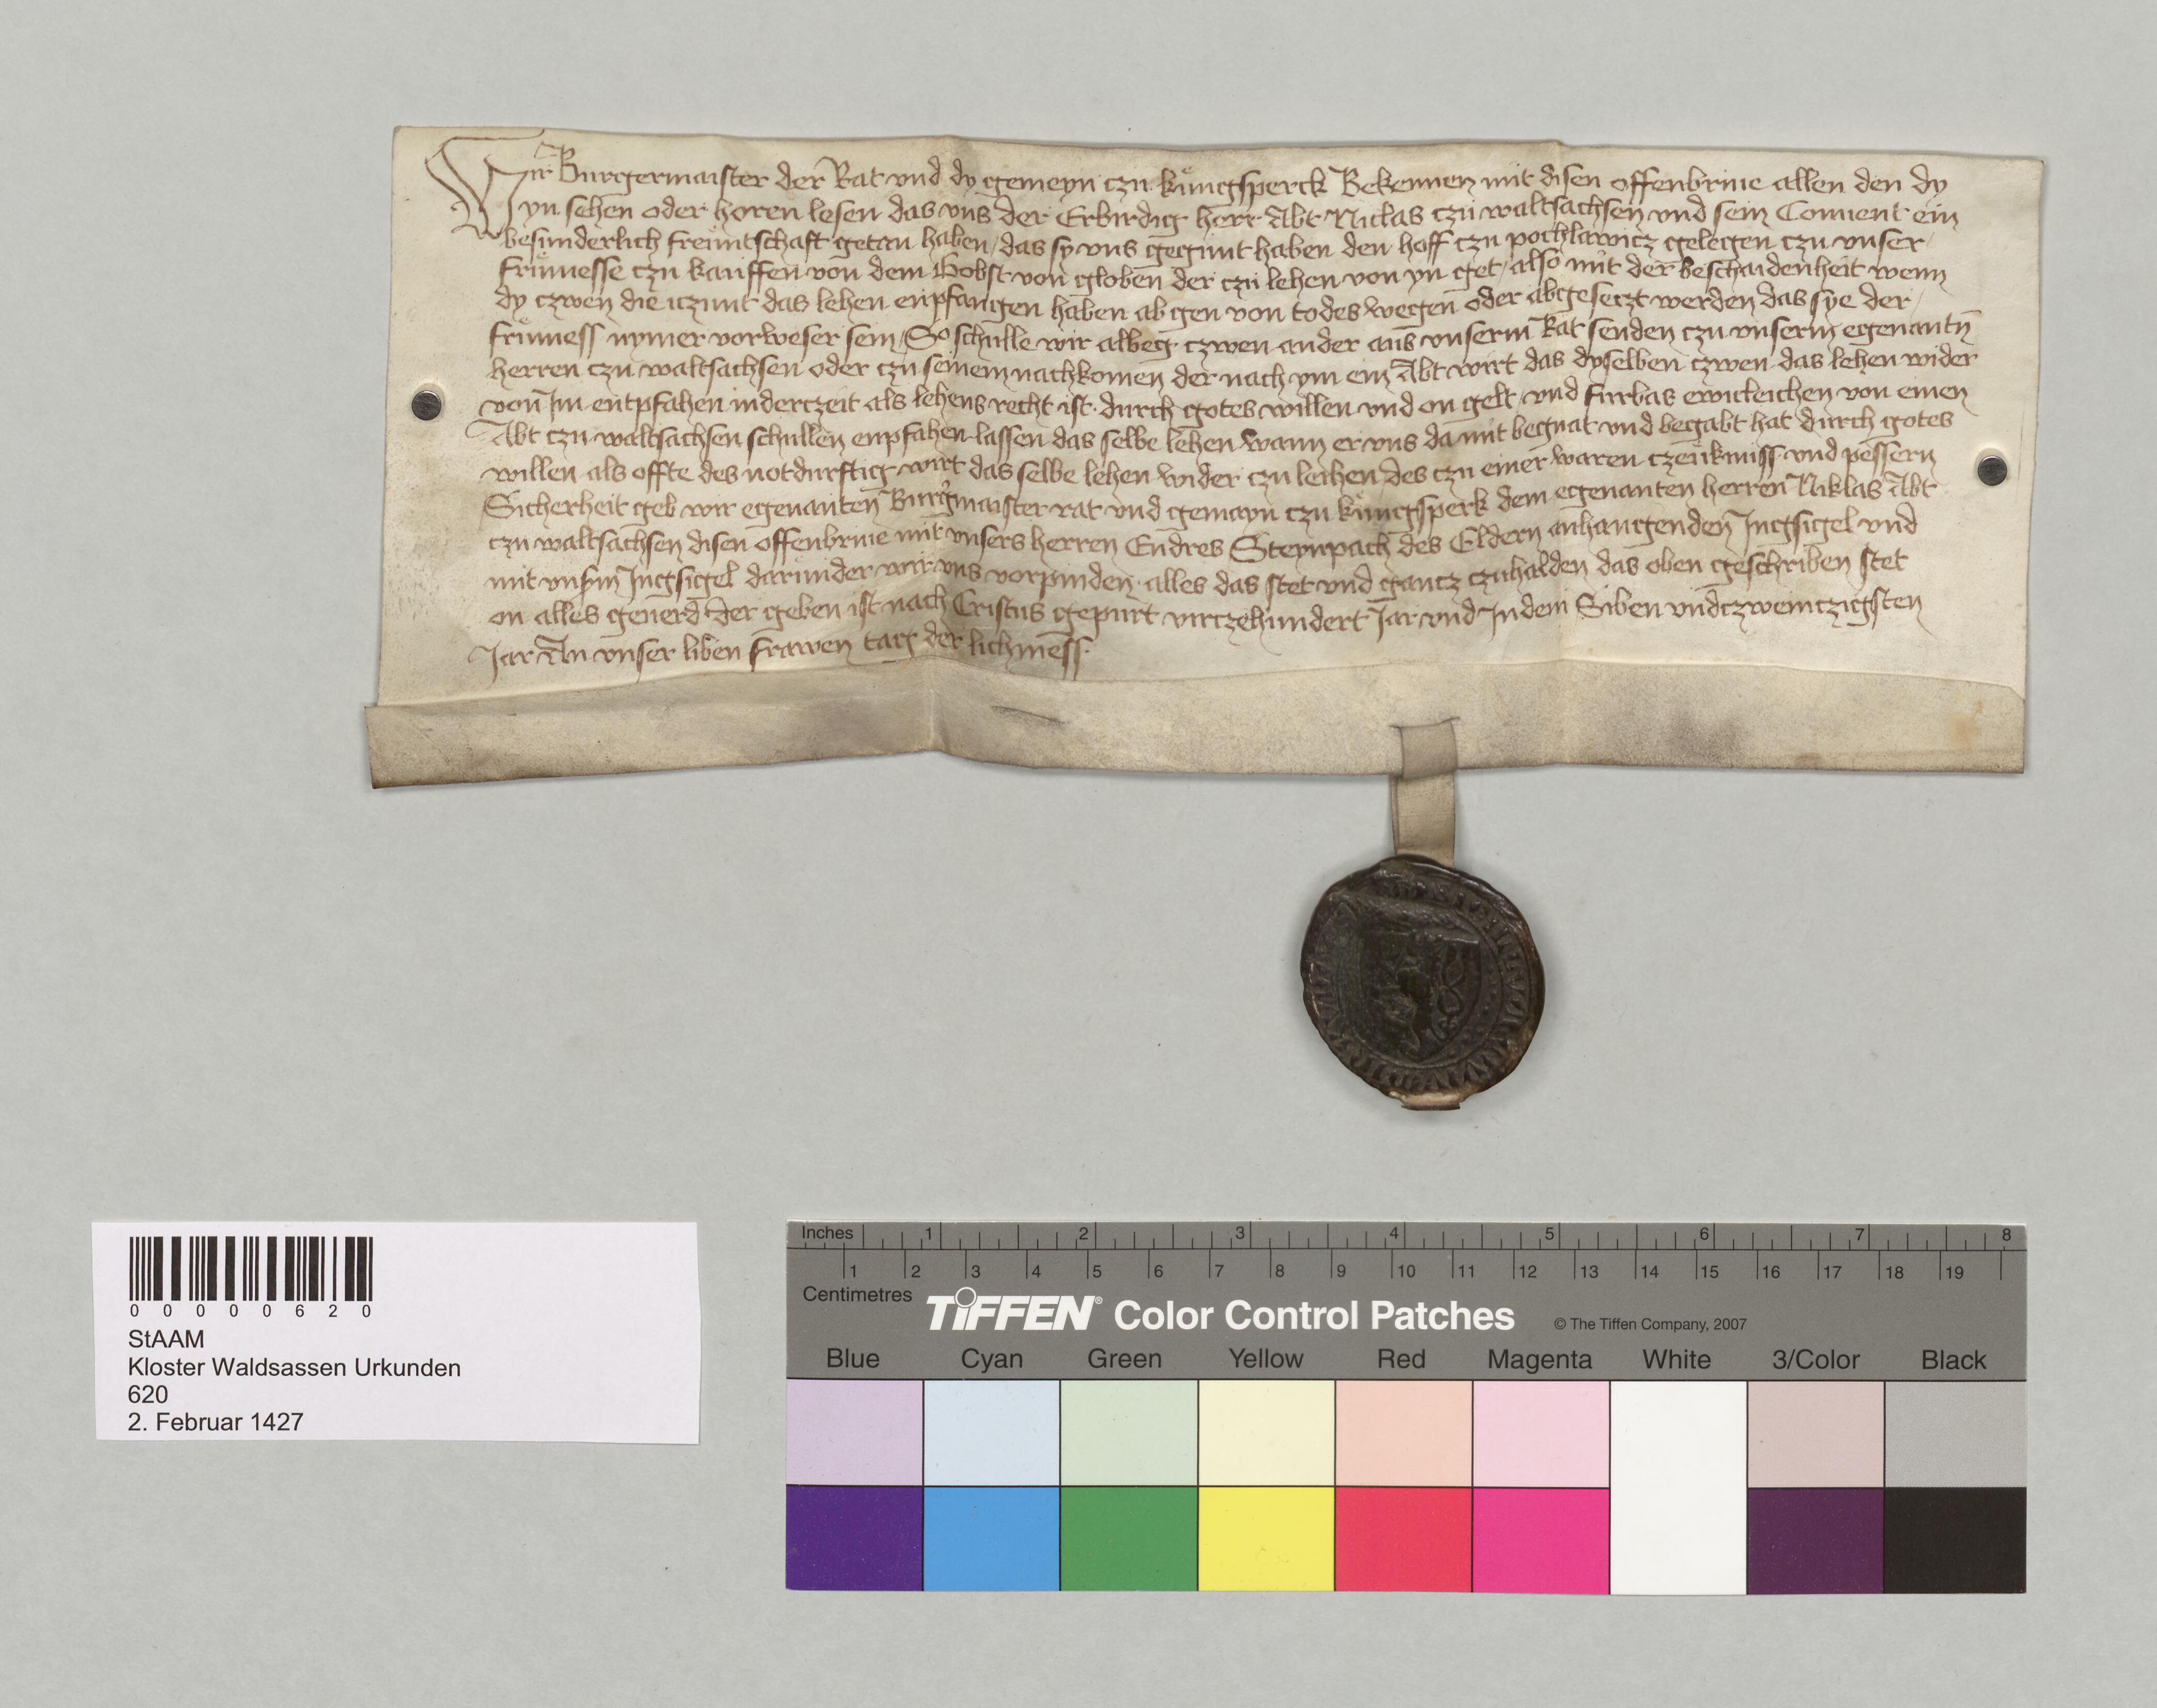 Wir Burgermaister der Rat vnd dy gemeyn czu kůngsperck Bekennen mit disen offenbriue allen den dy
yn sehen oder horen lesen das vns der Erbirdig herr Abt Niclas czu waltsachsen vnd sein Conuent ein
besunderlich freuntschaft getan haben / das sy vns gegunt haben den hoff czu pochlawicz gelegen czu vnser
frůmesse czu kauffen von dem Hobst von globen der czu lehen von yn get / also mit der beschaidenheit wenn
dy czwen die iczunt das lehen enpfangen haben abgen von todes wegen oder abgeseczt werden das sye der
frůmess nymer vorweser sein / So schulle wir albeg czwen ander aus vnserm Rat senden czu vnserm egenantn̄
herren czu waltsachsen oder czu seinem nachkomen der nach ym ein Abt wirt das dyselben czwen das lehen wider
von Im entpfahen inderczeit als lehens recht ist durch gotes willen vnd on gelt vnd furbas ewicleichen von einen
Abt czu waltsachsen schullen enpfahen lassen das selbe lehen wann er vns da mit begnat vnd begabt hat durch gotes
willen als offte des notdurftig wirt das selbe lehen wider czu leihen des czu einer waren czeuknuss vnd pessern
Sicherheit geb wir egenanten Burgmaister rat vnd gemayn czu kůngsperk dem egenanten herren Niklas Abt
czu waltsachsen disen offenbriue mit vnsers herren Endres Steynpach des Eldern anhangenden Ingsigel vnd
mit vnserm Ingsigel darunder wir vns vorpinden alles das stet vnd gancz czuhalden das oben geschriben stet
on alles geuerd Der geben ist nach Cristus gepurt virczehundert Jar vnd Indem Siben vndczweinczigsten
Jar An vnser liben frawen tag der lichmess
0 0 0 0 0 6 2 0
StAAM
Kloster Waldsassen Urkunden
620
2. Februar 1427
Inches 1 2 3 4 5 6 7 8
1 2 3 4 5 6 7 8 9 10 11 12 13 14 15 16 17 18 19
Centimetres
TIFFEN® Color Control Patches © The Tiffen Company, 2007
Blue Cyan Green Yellow Red Magenta White 3/Color Black